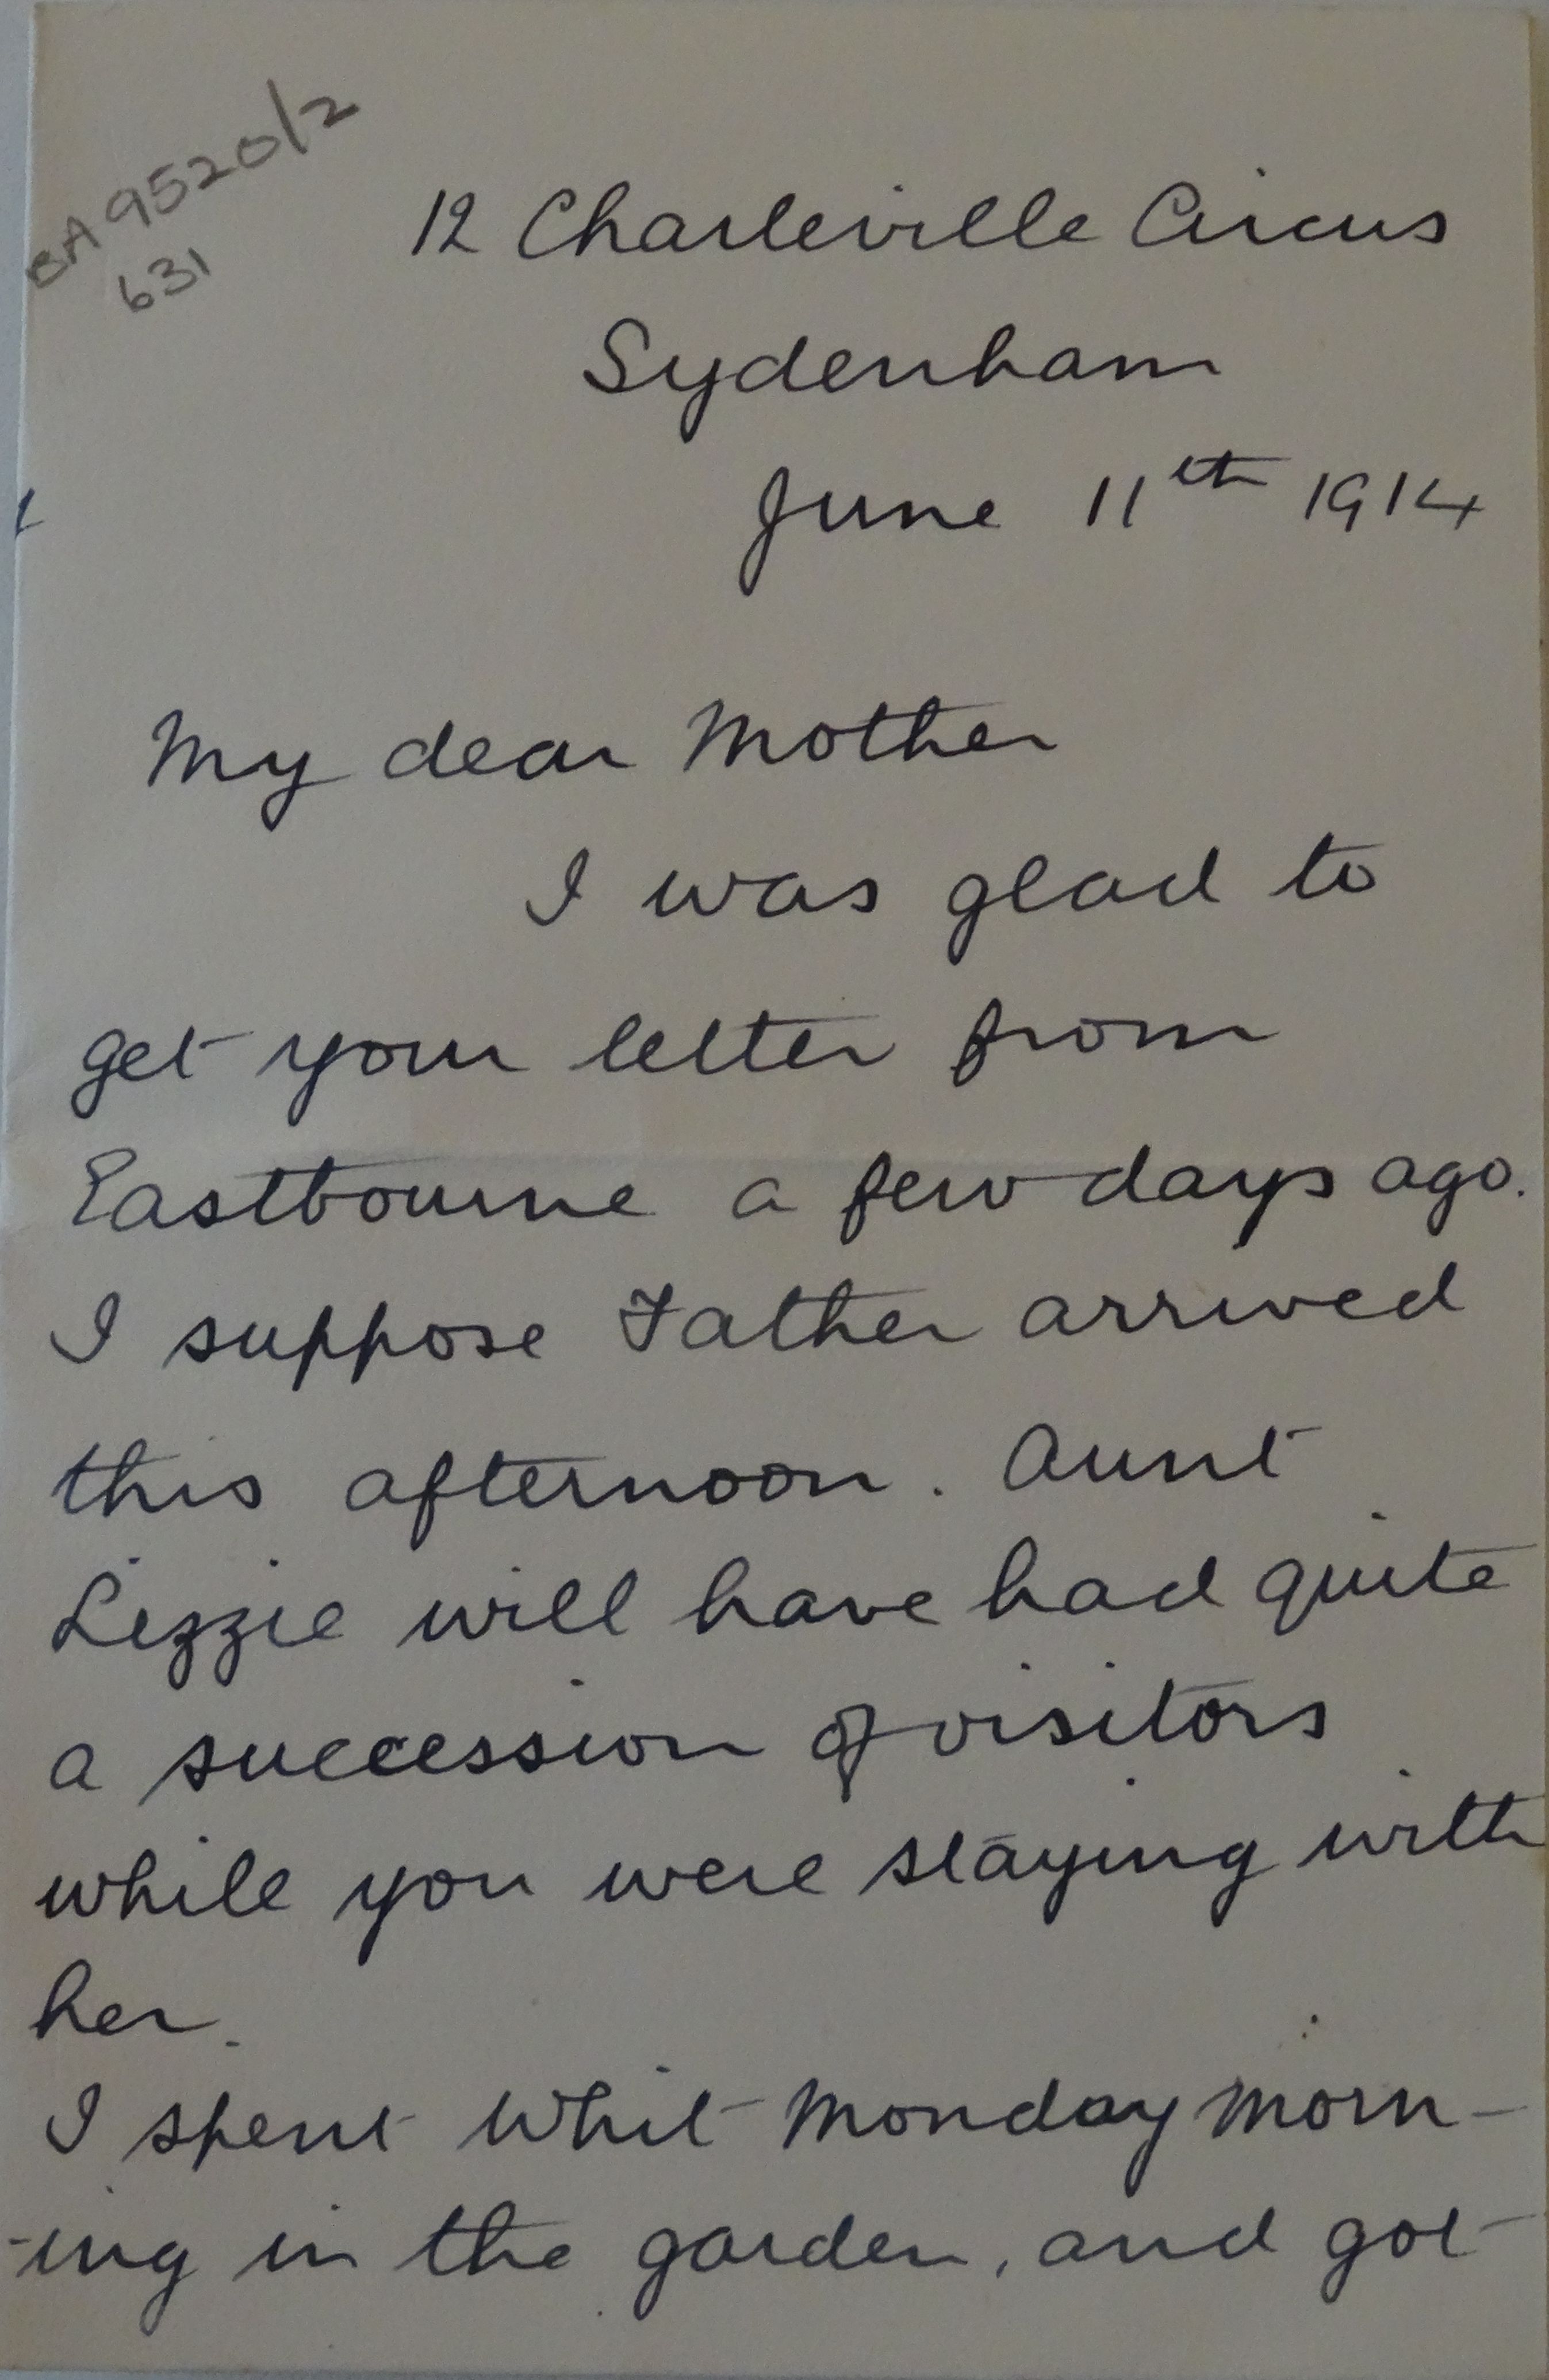 BA 9520/2
631
12 Charleville Circus
Sydenham
June 11th 1914
My dear Mother
I was glad to
get your letter from
Eastbourne a few days ago.
I suppose Father arrived
this afternoon. Aunt
Lizzie will have had quite
a succession of visitors
while you were staying with
her.
I spent Whit Monday morn-
-ing in the garden, and got